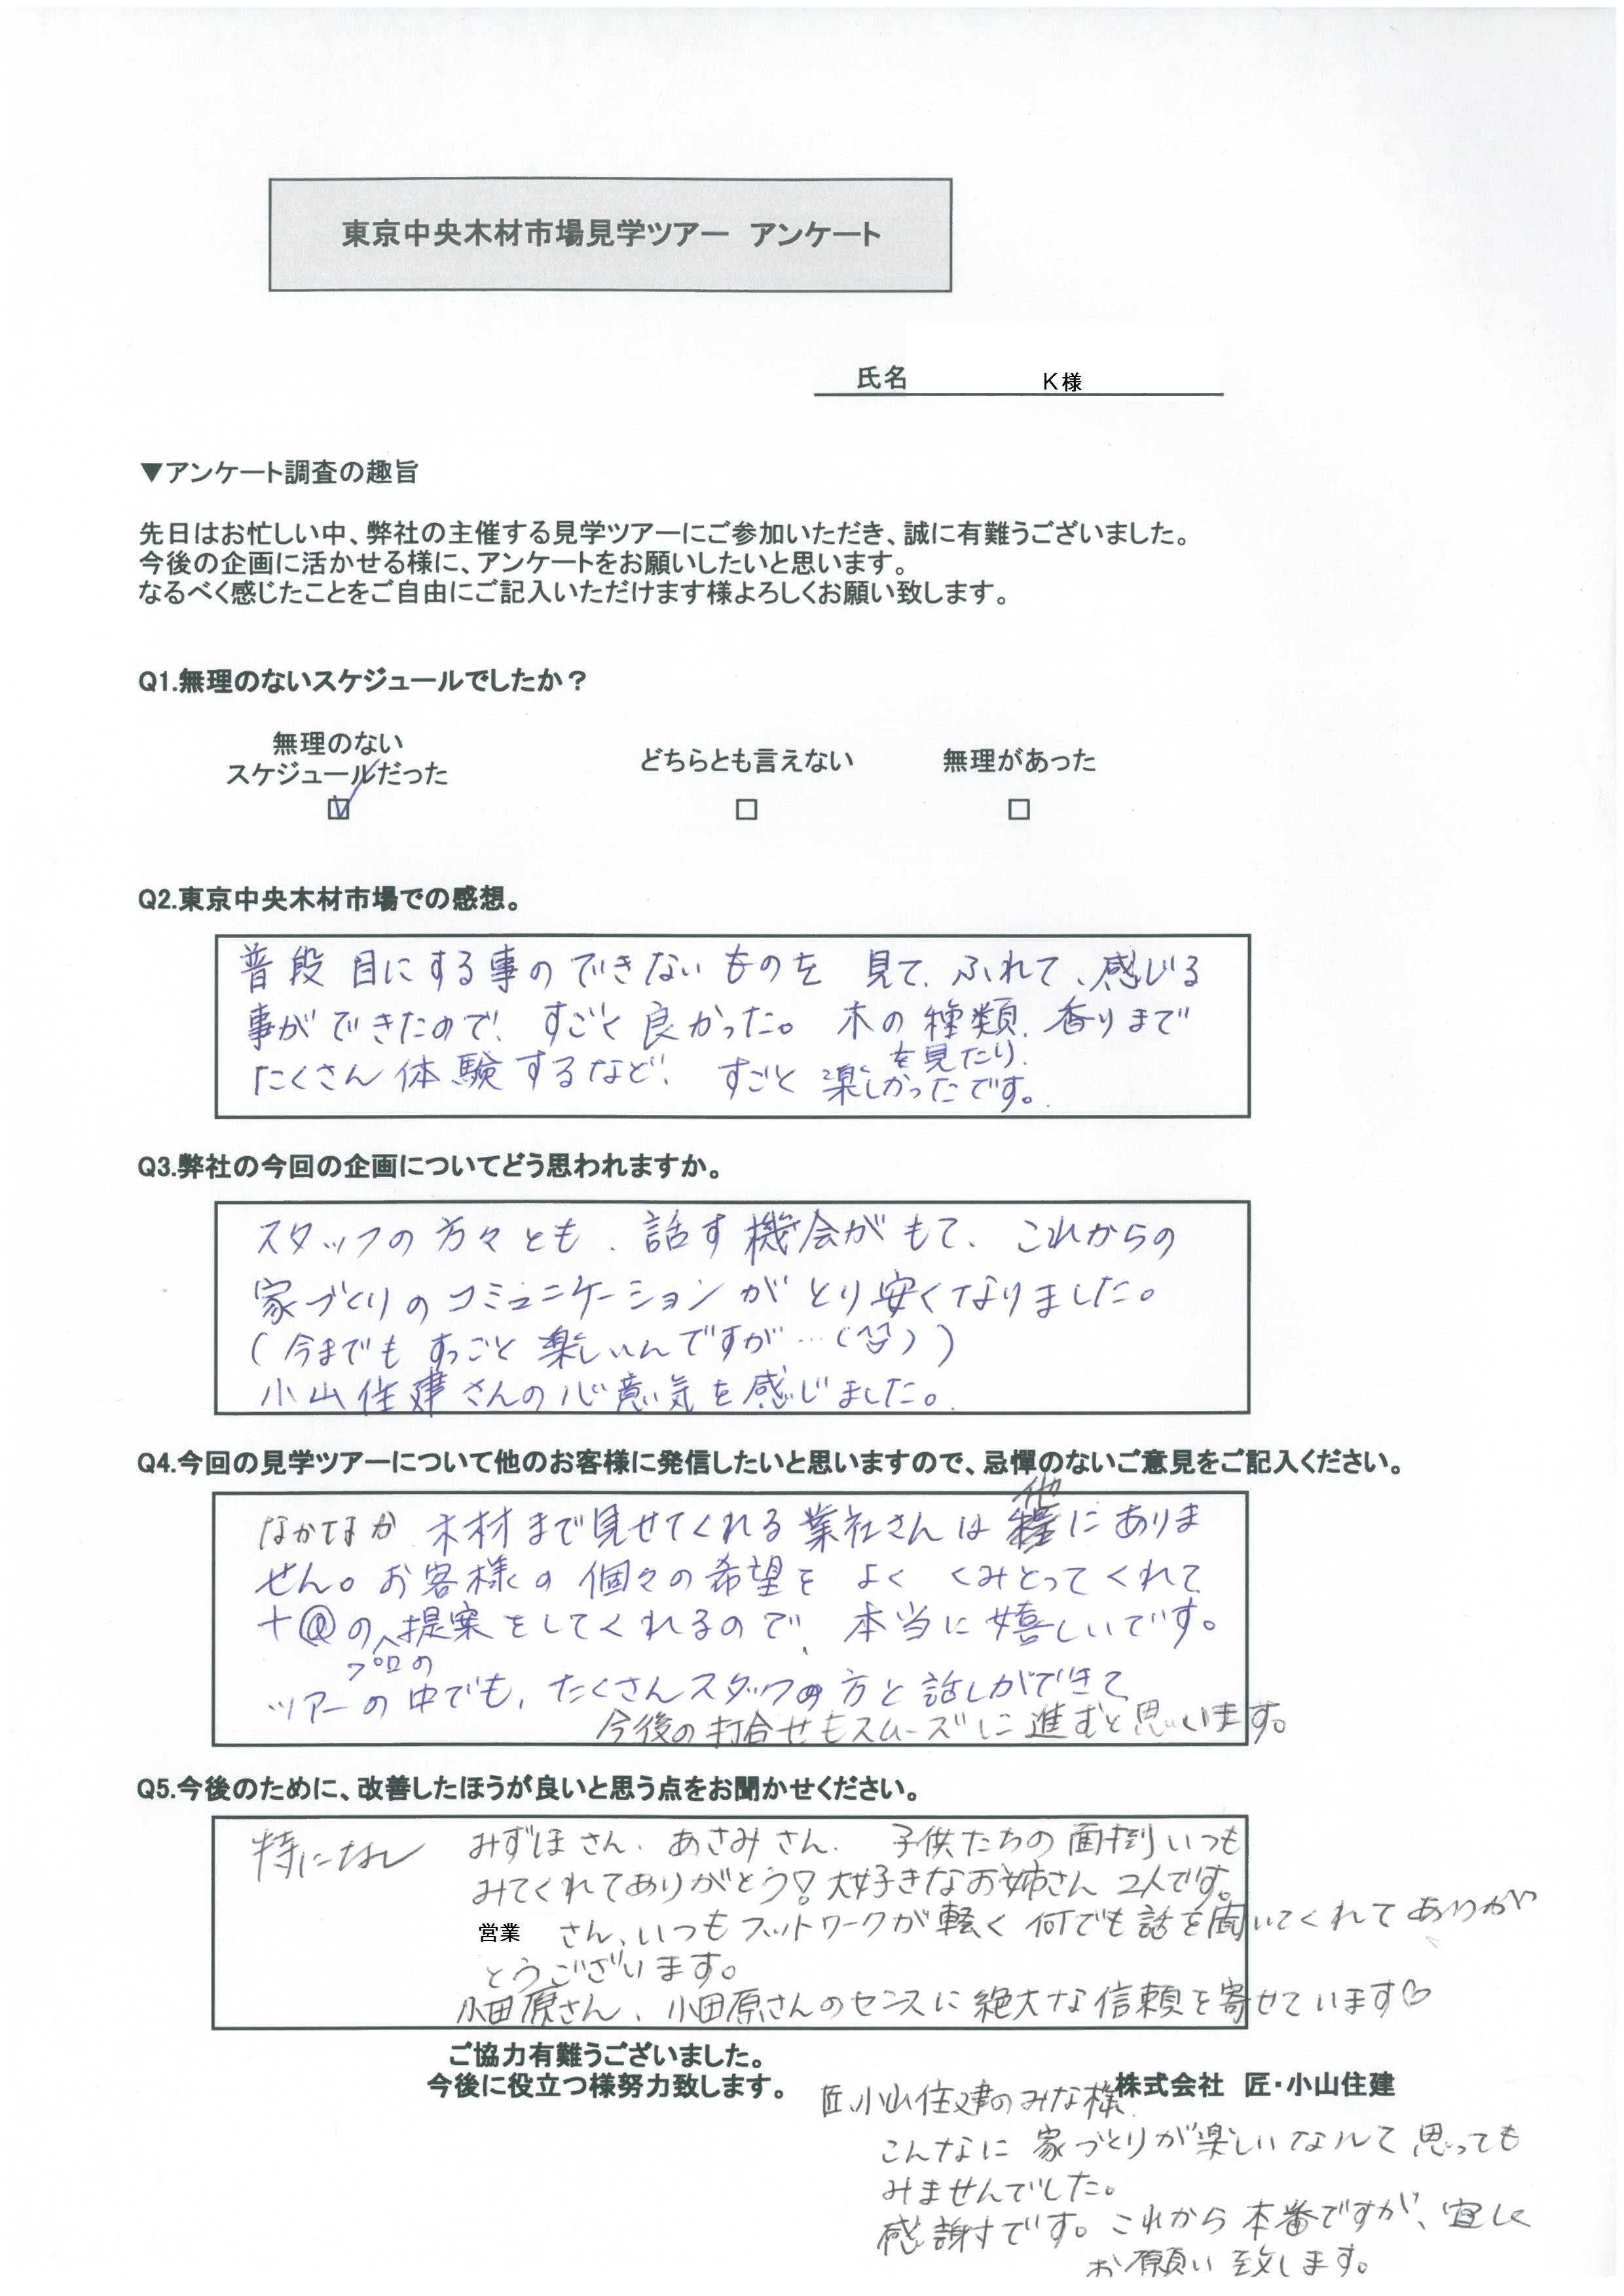 東京中央木材市場見学ツアー アンケート
氏名 K様
▼アンケート調査の趣旨
先日はお忙しい中、弊社の主催する見学ツアーにご参加いただき、誠に有難うございました。
今後の企画に活かせる様に、アンケートをお願いしたいと思います。
なるべく感じたことをご自由にご記入いただけます様よろしくお願い致します。
Q1.無理のないスケジュールでしたか？
無理のない
スケジュールだった
どちらとも言えない
無理があった
Q2.東京中央木材市場での感想。
普段目にする事のできないものを 見て、ふれて、感じる
事ができたので、すごく良かった。木の種類、香りまで
を見たり、
たくさん体験するなど、すごく楽しかったです。
Q3.弊社の今回の企画についてどう思われますか。
スタッフの方々とも、話す機会がもて、これからの
家づくりのコミュニケーションがとり安くなりました。
(今までもすっごく楽しいんですが…(^^))
小山住建さんの心意気を感じました。
Q4.今回の見学ツアーについて他のお客様に発信したいと思いますので、忌憚のないご意見をご記入ください。
なかなか木材まで見せてくれる業社さんは他にありま
せん。お客様の個々の希望をよくくみとってくれて
+@の提案をしてくれるので、本当に嬉しいです。
プロの
ツアーの中でも、たくさんスタッフの方と話しができて
今後の打合せもスムーズに進むと思います。
Q5.今後のために、改善したほうが良いと思う点をお聞かせください。
特になし
みずほさん、あさみさん、子供たちの面倒いつも
みてくれてありがとう!大好きなお姉さん2人です。
営業 さん、いつもフットワークが軽く何でも話を聞いてくれてありが
とうございます。
小田原さん、小田原さんのセンスに絶大な信頼を寄せています♡
ご協力有難うございました。
今後に役立つ様努力致します。
株式会社 匠・小山住建
匠、小山住建のみな様
こんなに家づくりが楽しいなんて思っても
みませんでした。
感謝です。これから本番ですが、宜しく
お願い致します。